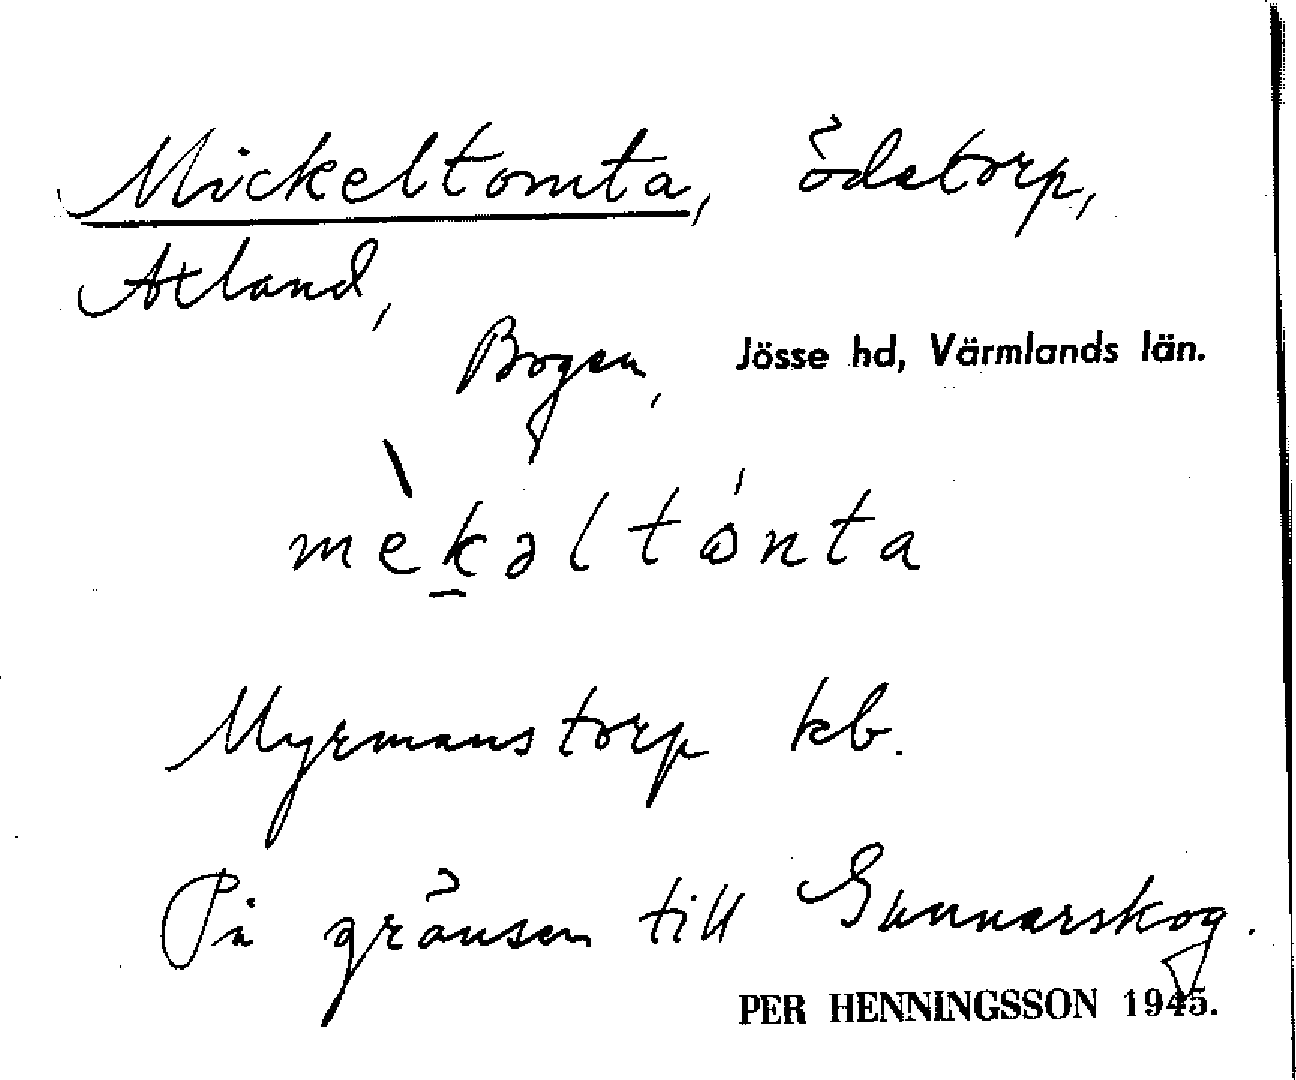 Mickeltomta, ödetorp,
Ätland,
Bogen, Jösse hd, Värmlands län.
mèkəltónta
Myrmanstorp kb.
På gränsen till Gunnarskog.
PER HENNINGSSON 1945.